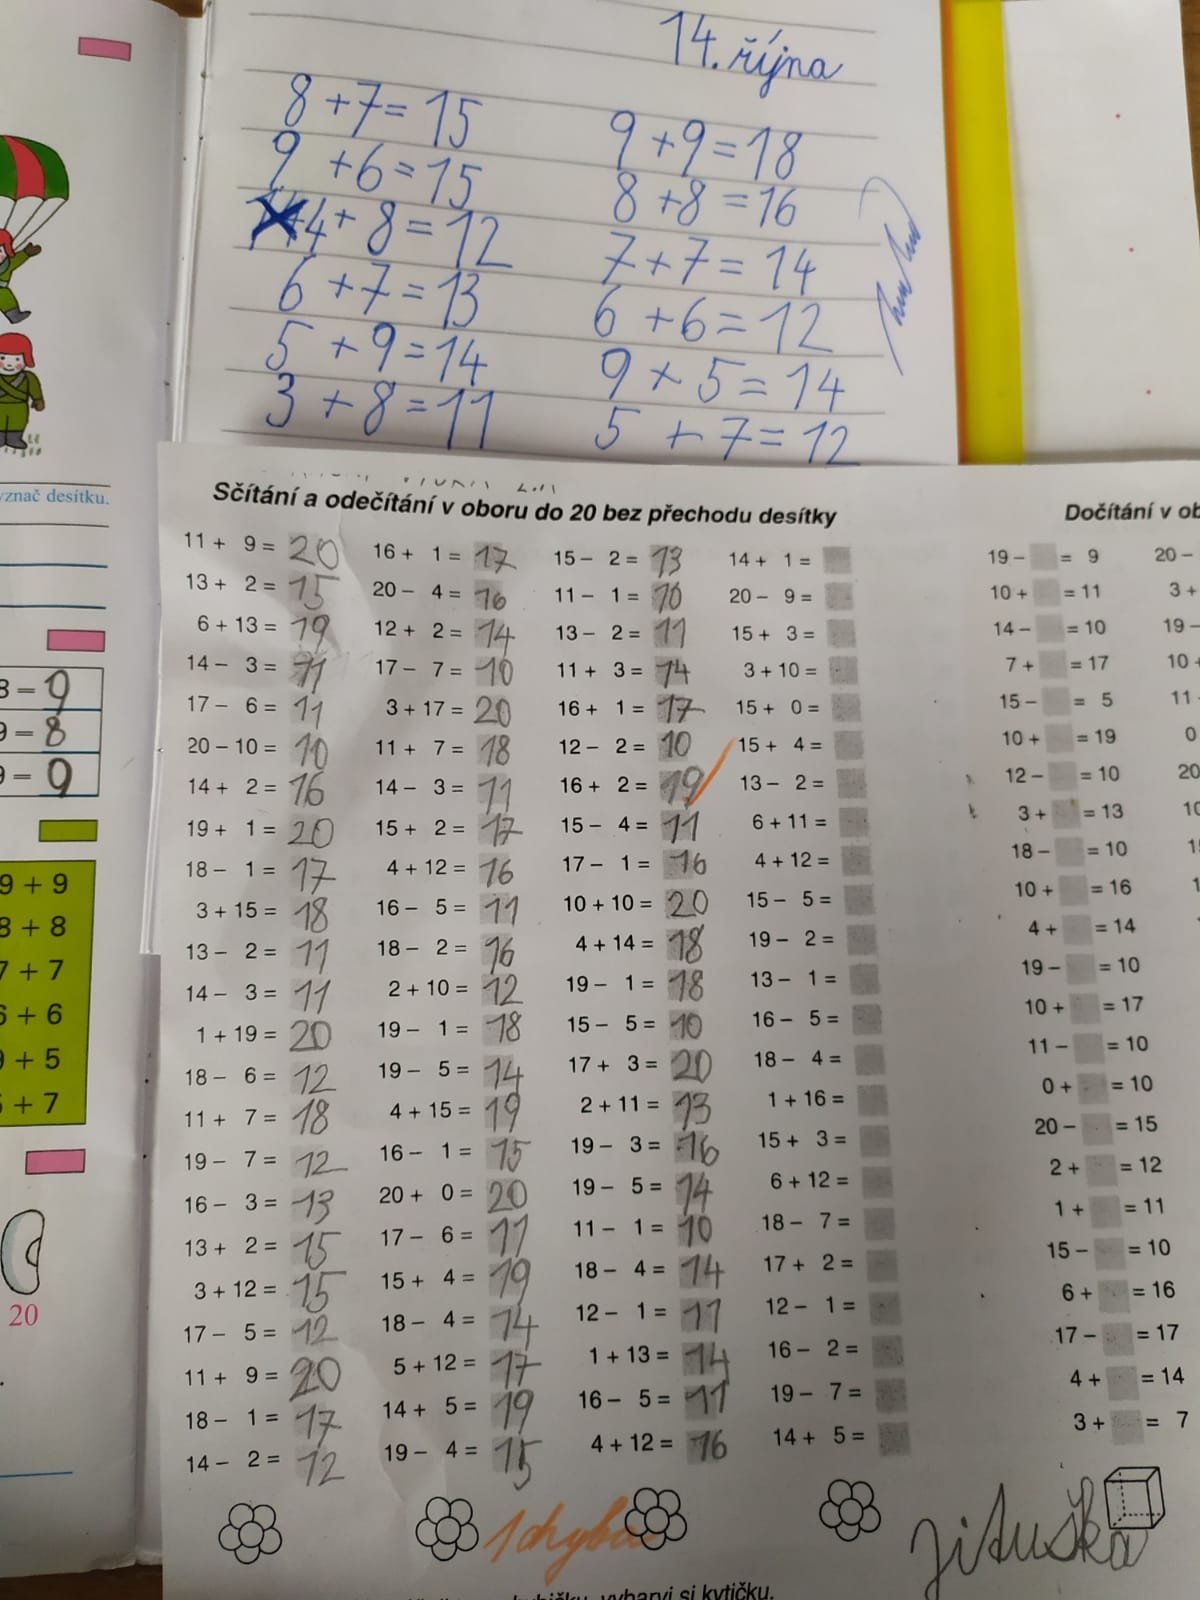 14. října
8 + 7 = 15
9 + 6 = 15
4 + 8 = 12
6 + 7 = 13
5 + 9 = 14
3 + 8 = 11
9 + 9 = 18
8 + 8 = 16
7 + 7 = 14
6 + 6 = 12
9 + 5 = 14
5 + 7 = 12
znač desítku.
8 – 9
9 – 8
9 – 9
9 + 9
8 + 8
7 + 7
6 + 6
9 + 5
5 + 7
20
Sčítání a odečítání v oboru do 20 bez přechodu desítky
11 + 9 = 20
13 + 2 = 15
6 + 13 = 19
14 – 3 = 11
17 – 6 = 11
20 – 10 = 10
14 + 2 = 16
19 + 1 = 20
18 – 1 = 17
3 + 15 = 18
13 – 2 = 11
14 – 3 = 11
1 + 19 = 20
18 – 6 = 12
11 + 7 = 18
19 – 7 = 12
16 – 3 = 13
13 + 2 = 15
3 + 12 = 15
17 – 5 = 12
11 + 9 = 20
18 – 1 = 17
14 – 2 = 12
16 + 1 = 17
20 – 4 = 16
12 + 2 = 14
17 – 7 = 10
3 + 17 = 20
11 + 7 = 18
14 – 3 = 11
15 + 2 = 17
4 + 12 = 16
16 – 5 = 11
18 – 2 = 16
2 + 10 = 12
19 – 1 = 18
19 – 5 = 14
4 + 15 = 19
16 – 1 = 15
20 + 0 = 20
17 – 6 = 11
15 + 4 = 19
18 – 4 = 14
5 + 12 = 17
14 + 5 = 19
19 – 4 = 15
15 – 2 = 13
11 – 1 = 10
13 – 2 = 11
11 + 3 = 14
16 + 1 = 17
12 – 2 = 10
16 + 2 = 19
15 – 4 = 11
17 – 1 = 16
10 + 10 = 20
4 + 14 = 18
19 – 1 = 18
15 – 5 = 10
17 + 3 = 20
2 + 11 = 13
19 – 3 = 16
19 – 5 = 14
11 – 1 = 10
18 – 4 = 14
12 – 1 = 11
1 + 13 = 14
16 – 5 = 11
4 + 12 = 16
14 + 1 =
20 – 9 =
15 + 3 =
3 + 10 =
15 + 0 =
15 + 4 =
13 – 2 =
6 + 11 =
4 + 12 =
15 – 5 =
19 – 2 =
13 – 1 =
16 – 5 =
18 – 4 =
1 + 16 =
15 + 3 =
6 + 12 =
18 – 7 =
17 + 2 =
12 – 1 =
16 – 2 =
19 – 7 =
14 + 5 =
Dočítání v ob
19 – = 9
10 + = 11
14 – = 10
7 + = 17
15 – = 5
10 + = 19
12 – = 10
3 + = 13
18 – = 10
10 + = 16
4 + = 14
19 – = 10
10 + = 17
11 – = 10
0 + = 10
20 – = 15
2 + = 12
1 + = 11
15 – = 10
6 + = 16
17 – = 17
4 + = 14
3 + = 7
20 –
3 +
19 –
10 +
11
0
20
10
1 chyba
Jituška
vybarvi si kytičku.